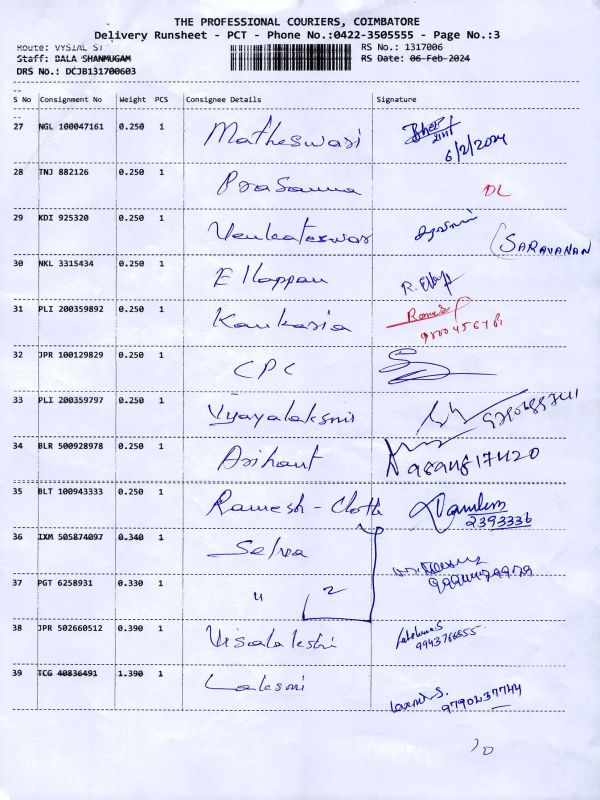 THE PROFESSIONAL COURIERS, COIMBATORE
Delivery Runsheet - PCT - Phone No.:0422-3505555 - Page No.:3
Route: VYSIAL ST RS No.: 1317006
Staff: BALA SHANMUGAM RS Date: 06-Feb-2024
DRS No.: DCJB131700603
S No Consignment No Weight PCS Consignee Details Signature
27 NGL 100047161 0.250 1 Matheswari 6/2/2024
28 TNJ 882126 0.250 1 Prasanna DL
29 KDI 925320 0.250 1 Venkateswar (SARAVANAN
30 NKL 3315434 0.250 1 Ellappan R. Ellap
31 PLI 200359892 0.250 1 Kankaria
32 JPR 100129829 0.250 1 CPC
33 PLI 200359797 0.250 1 Vijayalaksmi
34 BLR 500928978 0.250 1 Arihant 9894817420
35 BLT 100943333 0.250 1 Ramesh - Cloth
2393336
36 IXM 505874097 0.340 1 Selva
37 PGT 6258931 0.330 1 " 2
38 JPR 502660512 0.390 1 Visalakshi
9943766855
39 TCG 40836491 1.390 1 Laksmi
Laxmi S. 9790237744
10